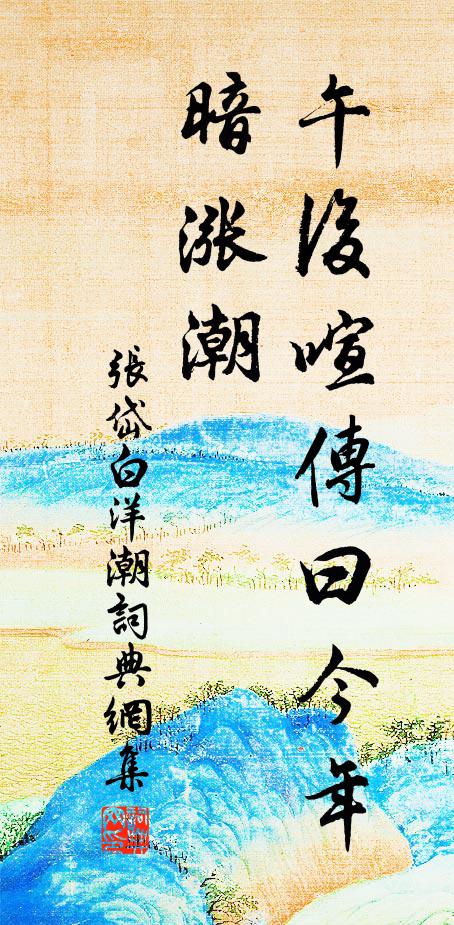 午後喧傳曰今年
暗漲潮
張岱白洋潮詞典網集